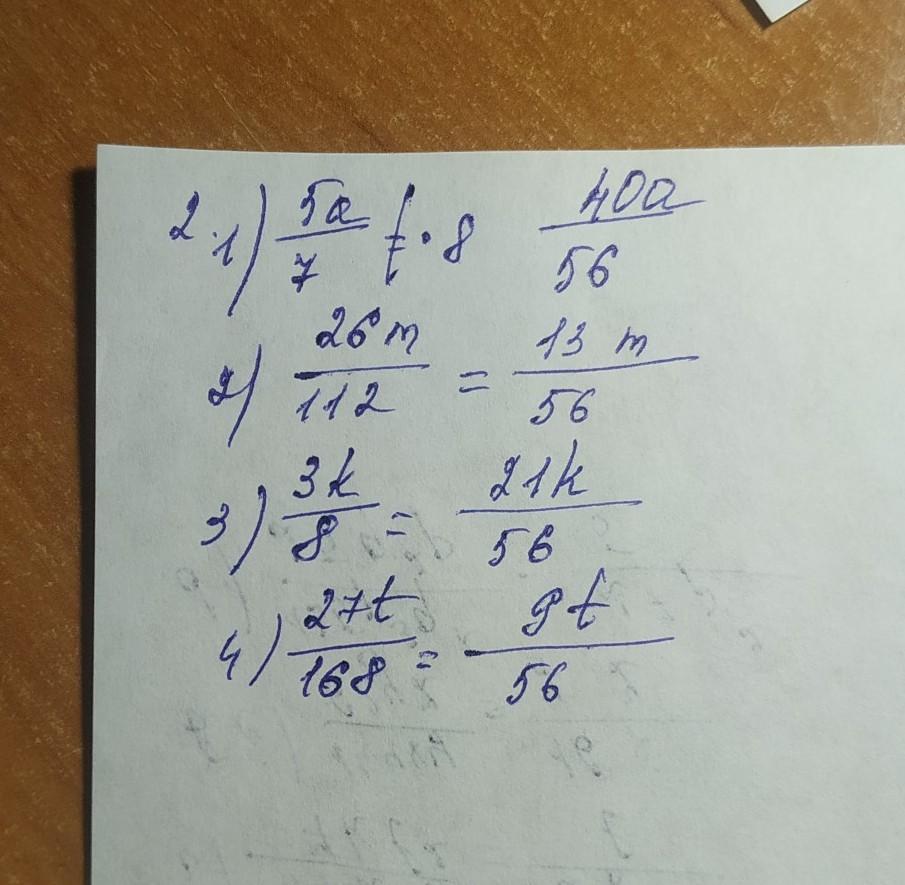 2.1) 5a/7 = (·8 40a/56
2) 26m/112 = 13 m/56
3) 3k/8 = 21k/56
4) 27t/168 = 9t/56